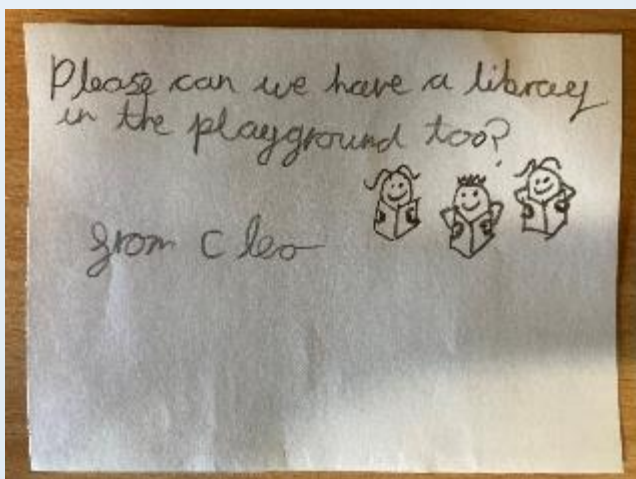 Please can we have a library
in the playground too?
from Cleo